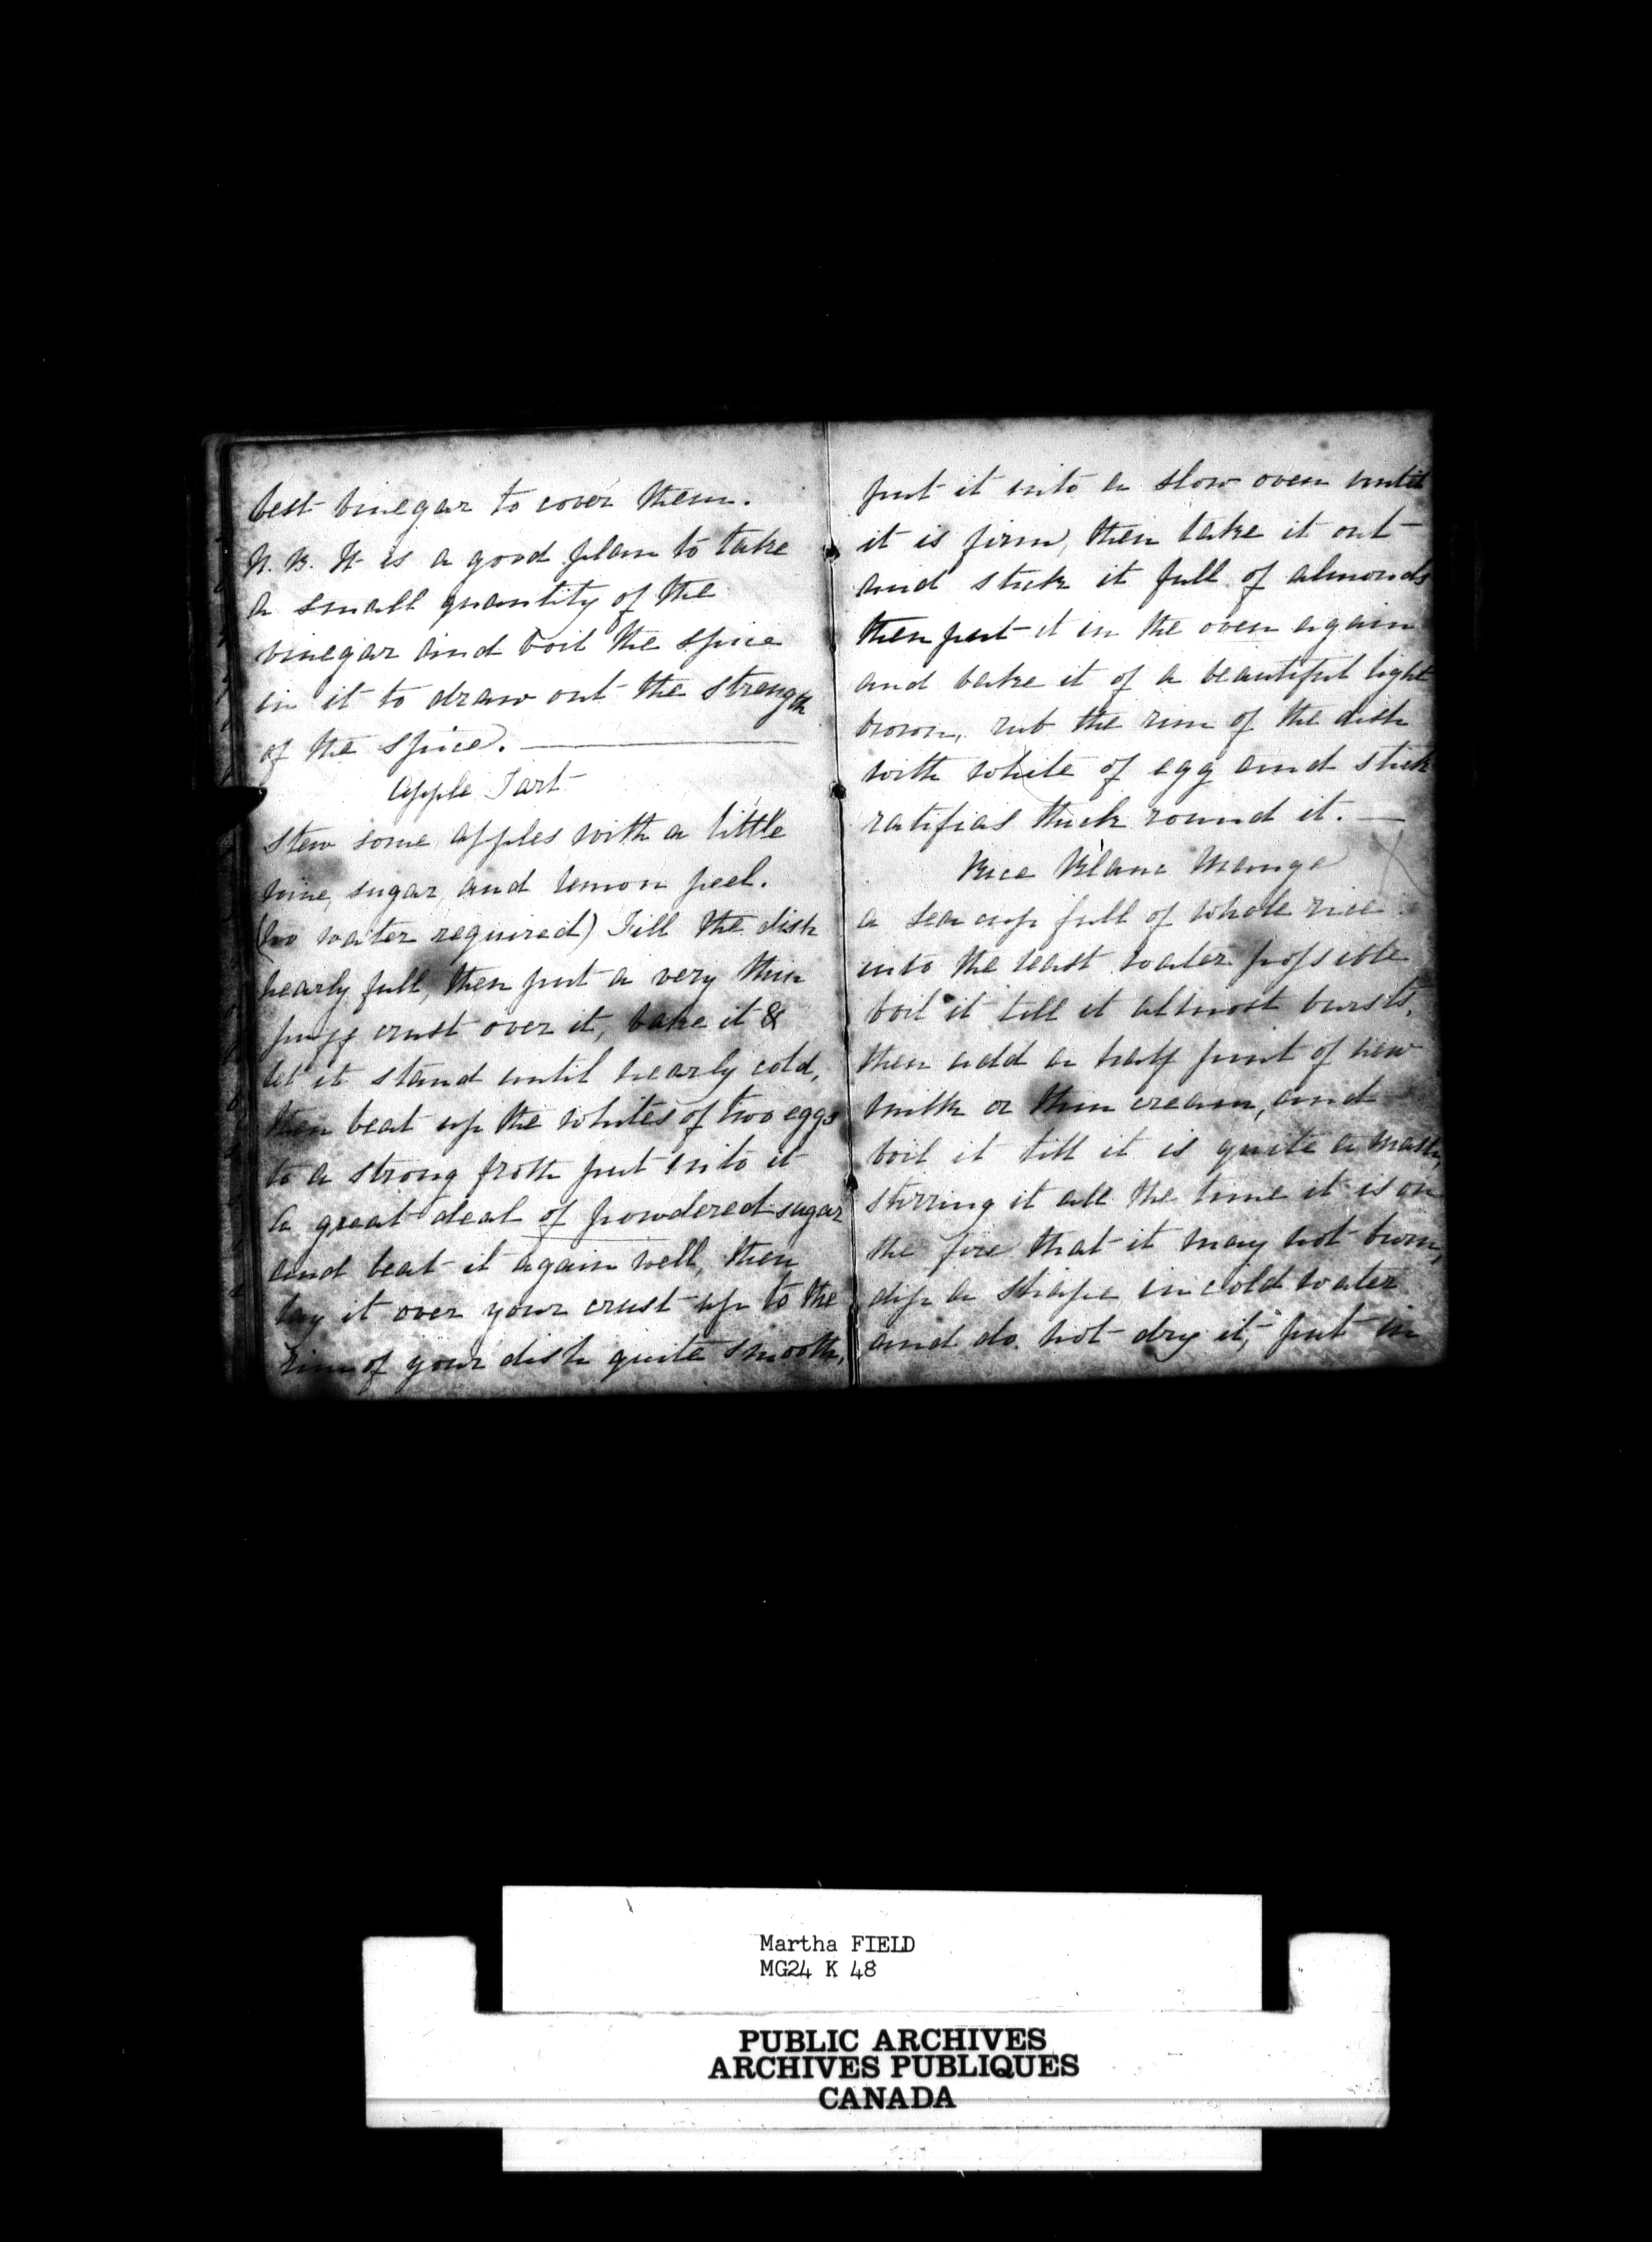 best vinegar to cover them.
N.B. It is a good plan to take
a small quantity of the
vinegar and boil the spice
in it to draw out the strength
of the spice.
Apple Tart
stew some apples with a little
wine, sugar, and lemon peel.
(no water required) Fill the dish
nearly full, then put a very thin
puff crust over it, bake it &
let it stand until nearly cold,
then beat up the whites of two eggs
to a strong froth put into it
a great deal of powdered sugar
and beat it again well, then
lay it over your crust up to the
rim of your dish quite smooth,
put it into a slow oven until
it is firm, then take it out
and stick it full of almonds
then put it in the oven again
and bake it of a beautiful light
brown, rub the rim of the dish
with white of egg and stick
ratifias thick round it. —
Rice Blanc Mange X
a tea cup full of whole rice
into the least water possible
boil it till it almost bursts,
then add a half pint of new
milk or thin cream, and
boil it till it is quite a mash,
stirring it all the time it is on
the fire that it may not burn,
dip a shape in cold water
and do not dry it, put in
Martha FIELD
MG24 K 48
PUBLIC ARCHIVES
ARCHIVES PUBLIQUES
CANADA